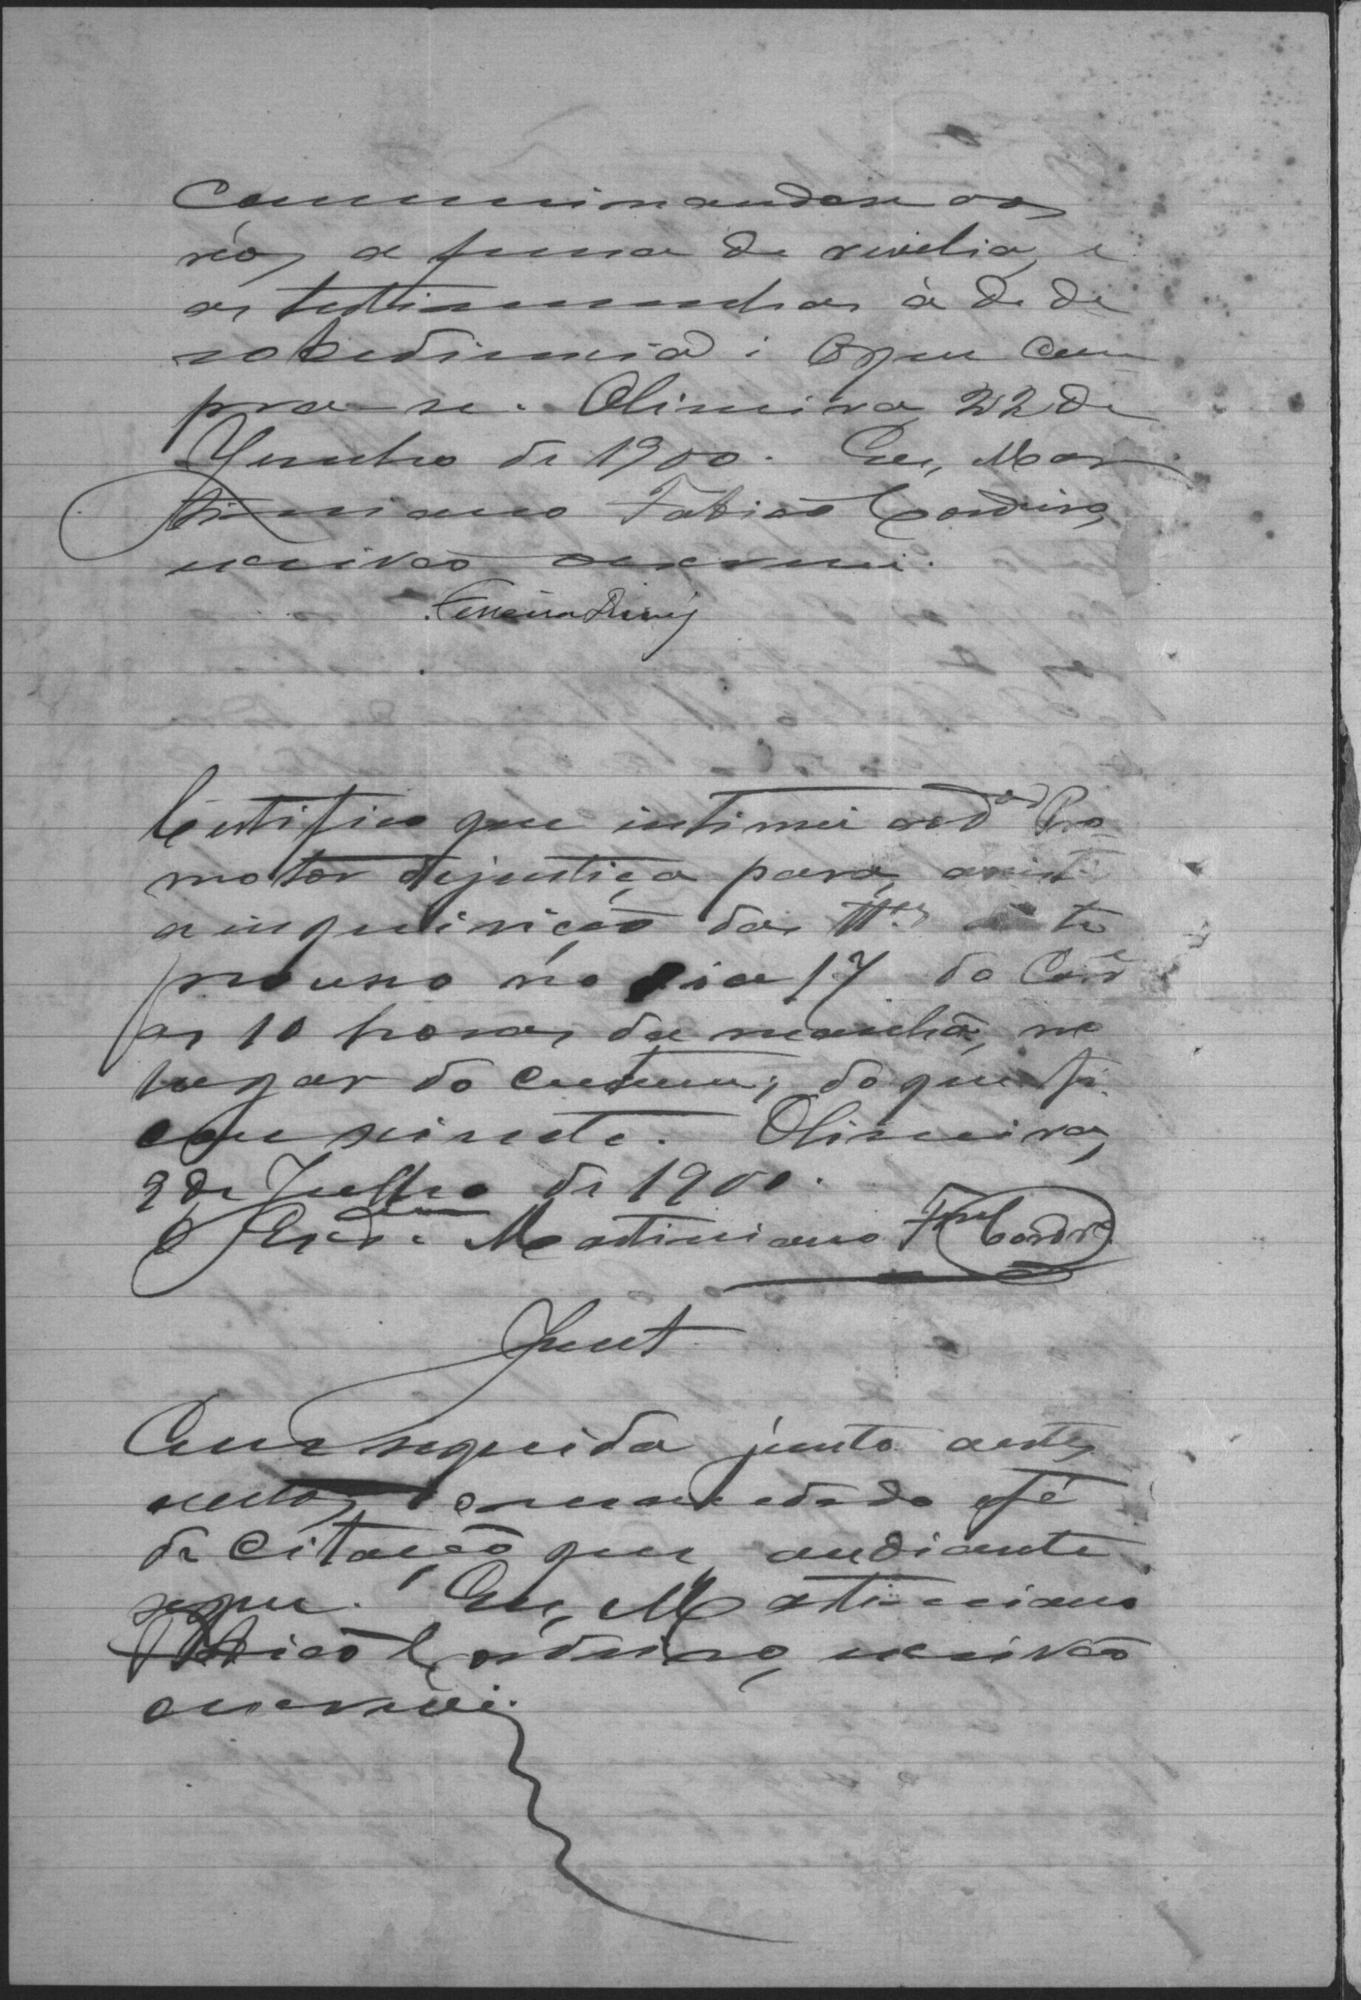 Comminandose aos
réos a pena de revelia, e
as testimunhas à de de
sobediencia; O que cum
pra-se. Oliveira 22 de
Junho de 1900. Eu, Mar
timiano Fabião Cordeiro,
escrivão escrevi.
Ferreira Diniz
Certifico que intimei ao dor Pro
motor dejustiça para assist
a inquirição das ttas
processo no dia 17 do Corre
as 10 horas da manhã, no
lugar do custume; do que fi
cou sciente. Oliveira,
2 de Julho de 1900.
O Escr. Martimiano Fab Cordro
Junt
Em seguida junto a estes
autos, o mandado e fé
de citação que adiante
segue. Eu, Martimiano
Fabião Cordeiro, escrivão
escrevi.